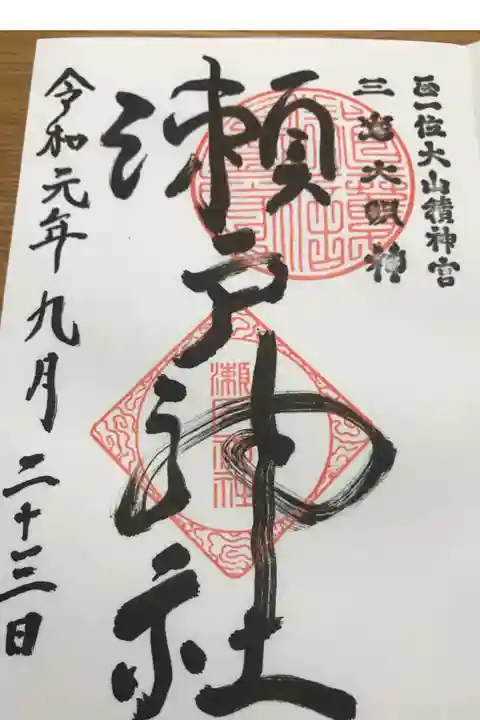 正一位大山積神宮
三島大明神
瀬戸神社
令和元年九月二十三日
瀬戸神社